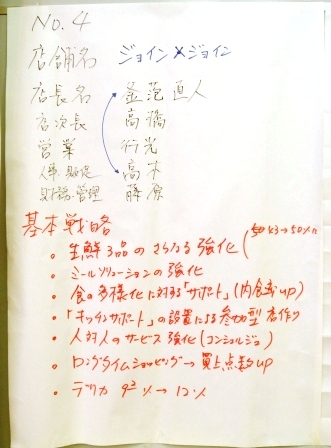 No. 4
店舗名 ジョイン×ジョイン
店長名 釜范直人
店次長 高橋
営業 行光
人事・販促 高木
財務・管理 藤原
基本戦略
・生鮮3品のさらなる強化
・ミールソリューションの強化
・食の多様化に対する「サポート」(内食率up)
・「キッチンサポート」の設置による参加型店作り
・人対人のサービス強化(コンシェルジュ)
・ロングタイムショッピング→買上点数up
・デリカ 9.2%→12%